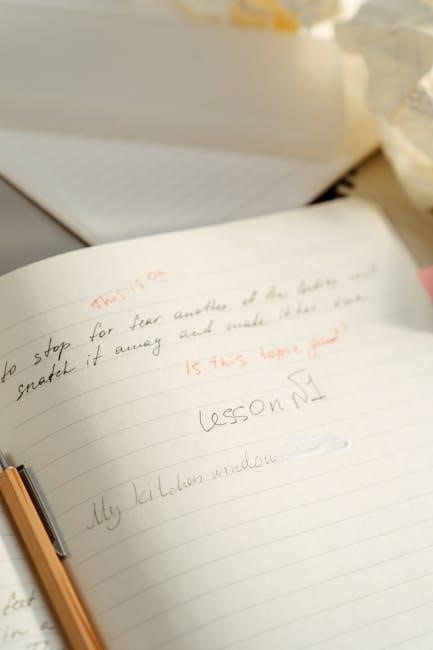 This is a
to stop for fear another of the ladies
snatch it away and make it her own
Is this
lesson №1
My kitchen window
feet
in a